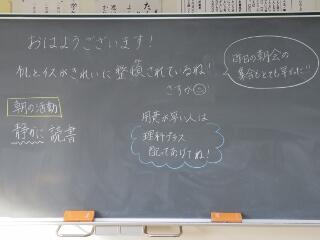 おはようございます！
机とイスがきれいに整頓されているね！
さすが☺
昨日の朝会の
集合もとても早かった!!
朝の活動
静かに読書
用意が早い人は
理科プラス
配ってあげてね！